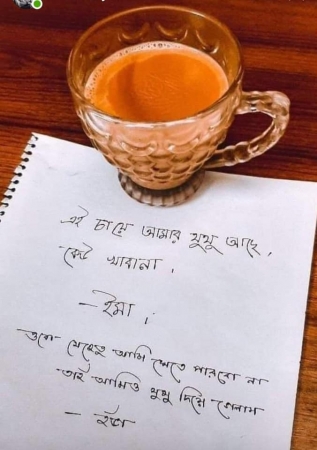 এই চায়ে আমার থুথু আছে,
কেউ খাবানা।
– ইমা ;
যেহেতু আমি খেতে পারবো না
তাই আমিও থুথু দিয়ে গেলাম